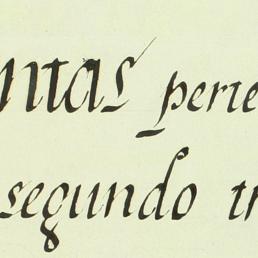 ntas perte
segundo tr